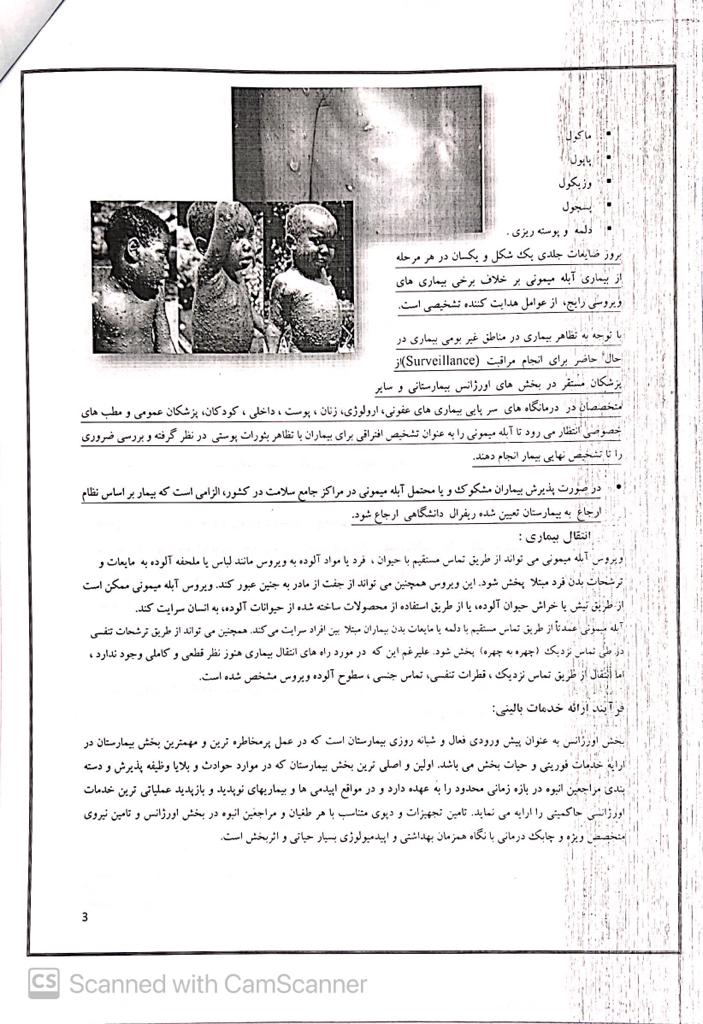 ماکول
پاپول
وزیکول
پسچول
دلمه و پوسته ریزی .
بروز ضایعات جلدی یک شکل و یکسان در هر مرحله
از بیماری آبله میمونی بر خلاف برخی بیماری های
ویروسی رایج، از عوامل هدایت کننده تشخیصی است.
با توجه به تظاهر بیماری در مناطق غیر بومی بیماری در
حال حاضر برای انجام مراقبت (Surveillance)از
پزشکان مستقر در بخش های اورژانس بیمارستانی و سایر
متخصصان در درمانگاه های سر پایی بیماری های عفونی، ارولوژی، زنان ، پوست ، داخلی ، کودکان، پزشکان عمومی و مطب های
خصوصی انتظار می رود تا آبله میمونی را به عنوان تشخیص افتراقی برای بیماران با تظاهر بثورات پوستی در نظر گرفته و بررسی ضروری
را تا تشخیص نهایی بیمار انجام دهند.
در صورت پذیرش بیماران مشکوک و یا محتمل آبله میمونی در مراکز جامع سلامت در کشور، الزامی است که بیمار بر اساس نظام
ارجاع به بیمارستان تعیین شده ریفرال دانشگاهی ارجاع شود.
انتقال بیماری :
ویروس آبله میمونی می تواند از طریق تماس مستقیم با حیوان ، فرد یا مواد آلوده به ویروس مانند لباس یا ملحفه آلوده به مایعات و
ترشحات بدن فرد مبتلا پخش شود. این ویروس همچنین می تواند از جفت از مادر به جنین عبور کند. ویروس آبله میمونی ممکن است
از طریق نیش یا خراش حیوان آلوده، یا از طریق استفاده از محصولات ساخته شده از حیوانات آلوده، به انسان سرایت کند.
آبله میمونی عمدتاً از طریق تماس مستقیم با دلمه یا مایعات بدن بیماران مبتلا بین افراد سرایت می‌کند. همچنین می تواند از طریق ترشحات تنفسی
در طی تماس نزدیک (چهره به چهره) پخش شود. علیرغم این که در مورد راه های انتقال بیماری هنوز نظر قطعی و کاملی وجود ندارد ،
اما انتقال از طریق تماس نزدیک ، قطرات تنفسی، تماس جنسی ، سطوح آلوده ویروس مشخص شده است.
فرآیند ارائه خدمات بالینی:
بخش اورژانس به عنوان پیش ورودی فعال و شبانه روزی بیمارستان است که در عمل پرمخاطره ترین و مهمترین بخش بیمارستان در
ارایه خدمات فوریتی و حیات بخش می باشد. اولین و اصلی ترین بخش بیمارستان که در موارد حوادث و بلایا وظیفه پذیرش و دسته
بندی مراجعین انبوه در بازه زمانی محدود را به عهده دارد و در مواقع اپیدمی ها و بیماریهای نوپدید و بازپدید عملیاتی ترین خدمات
اورژانسی حاکمیتی را ارایه می نماید. تامین تجهیزات و دپوی متناسب با هر طغیان و مراجعین انبوه در بخش اورژانس و تامین نیروی
متخصص ویژه و چابک درمانی با نگاه همزمان بهداشتی و اپیدمیولوژی بسیار حیاتی و اثربخش است.
3
CS Scanned with CamScanner